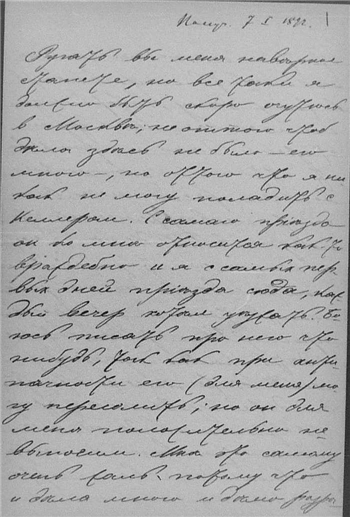 7 X 189
Ругать вы меня наверное
станете, но все таки я
должно быть скоро очутюсь
в Москвѣ; не оттого чтоб
дѣла здѣсь не было – его
много –, но оттого что я ни
какъ не могу поладить с
Келлером. С самаго пріезда
он ко мнѣ относится какъ то
враждебно и я с самых пер
вых дней пріезда сюда, каж
дый вечер хотѣл уѣхать. Бо
юсь писать про него что
нибудь, такъ какъ при анти
патичности его (для меня) мо
гу пересолить; но он для
меня положительно не
выносим. Мнѣ это самому
очень жаль. потому что
и дѣла много и было